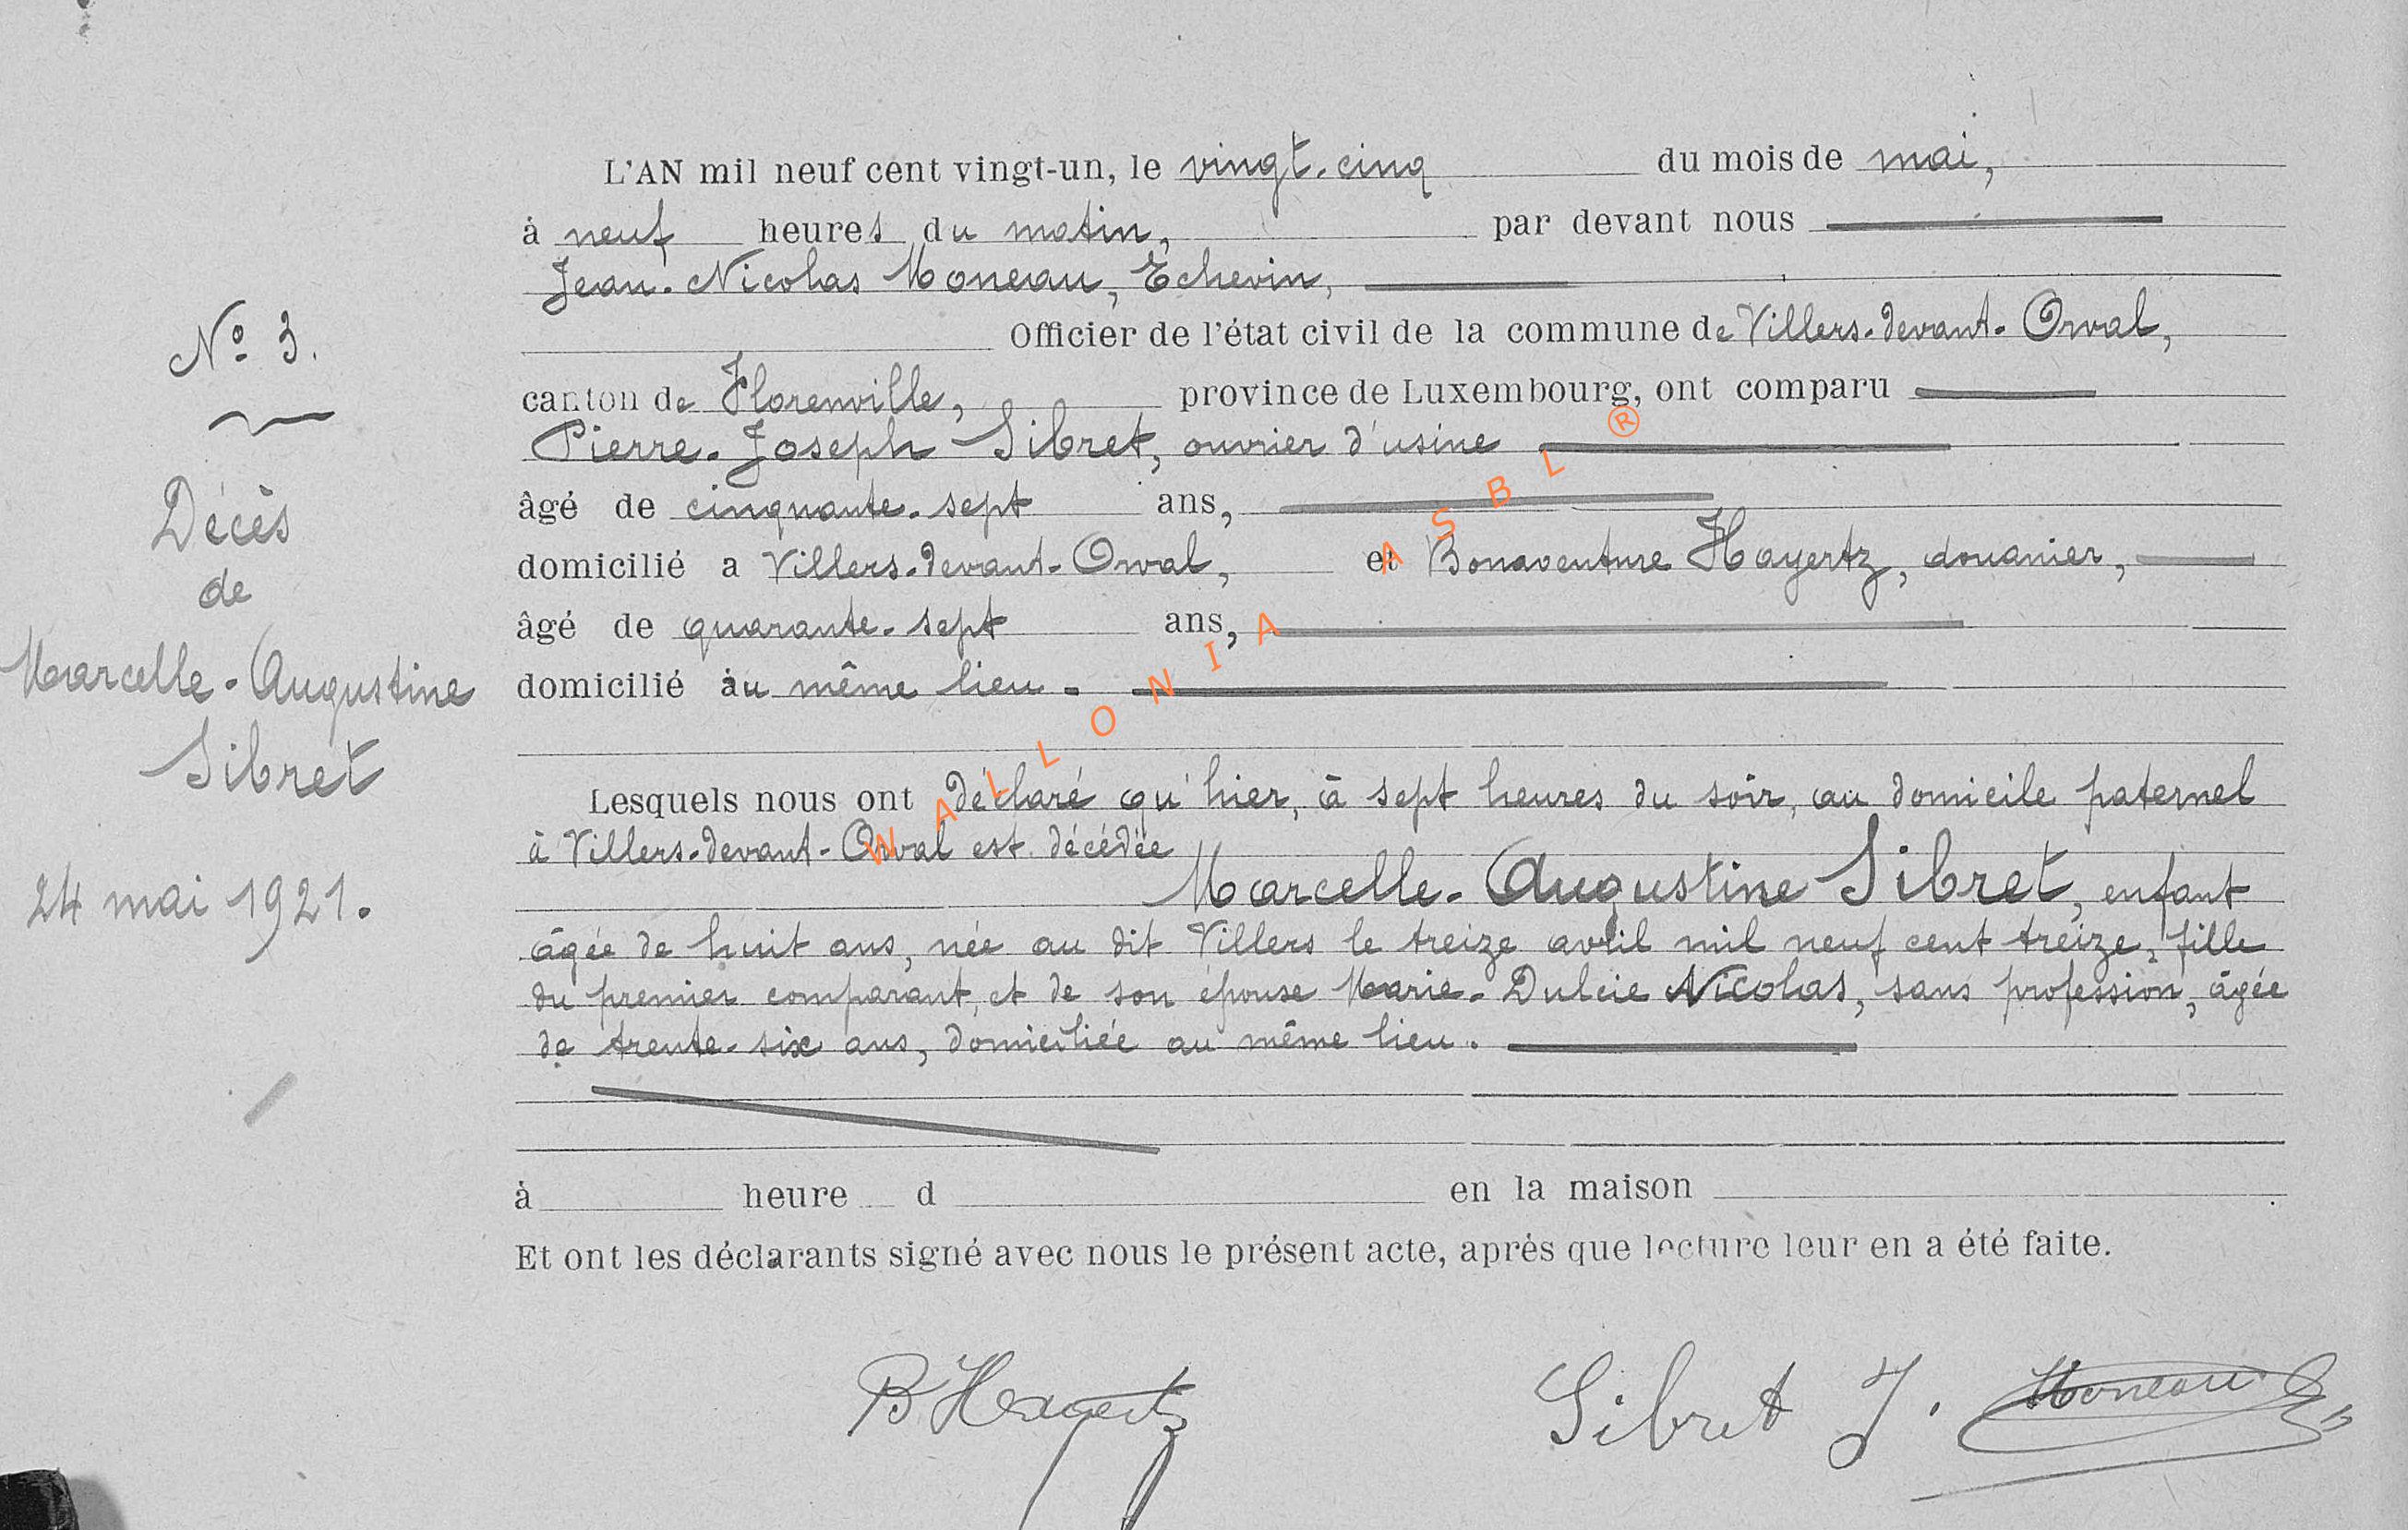 L'AN mil neuf cent vingt-un, le vingt-cinq du mois de mai,
à neuf heures du matin, par devant nous
Jean-Nicolas Moneau, Echevin,
N° 3.
Officier de l'état civil de la commune de Villers-devant-Orval,
canton de Florenville, province de Luxembourg, ont comparu
Pierre-Joseph Sibret, ouvrier d'usine
âgé de cinquante-sept ans,
Décès
domicilié a Villers-devant-Orval, et Bonaventure Hayertz, douanier,
de
âgé de quarante-sept ans,
Marcelle-Augustine
domicilié au même lieu.
Sibret
Lesquels nous ont déclaré qu'hier, à sept heures du soir, au domicile paternel
à Villers-devant-Orval est décédée
24 mai 1921.
Marcelle-Augustine Sibret, enfant
âgée de huit ans, née au dit Villers le treize avril mil neuf cent treize, fille
du premier comparant, et de son épouse Marie-Dulcie Nicolas, sans profession, âgée
de trente-six ans, domiciliée au même lieu.
à heure d en la maison
Et ont les déclarants signé avec nous le présent acte, après que lecture leur en a été faite.
B Hayertz Sibret J. Moneau
WALLONIA ASBL ®